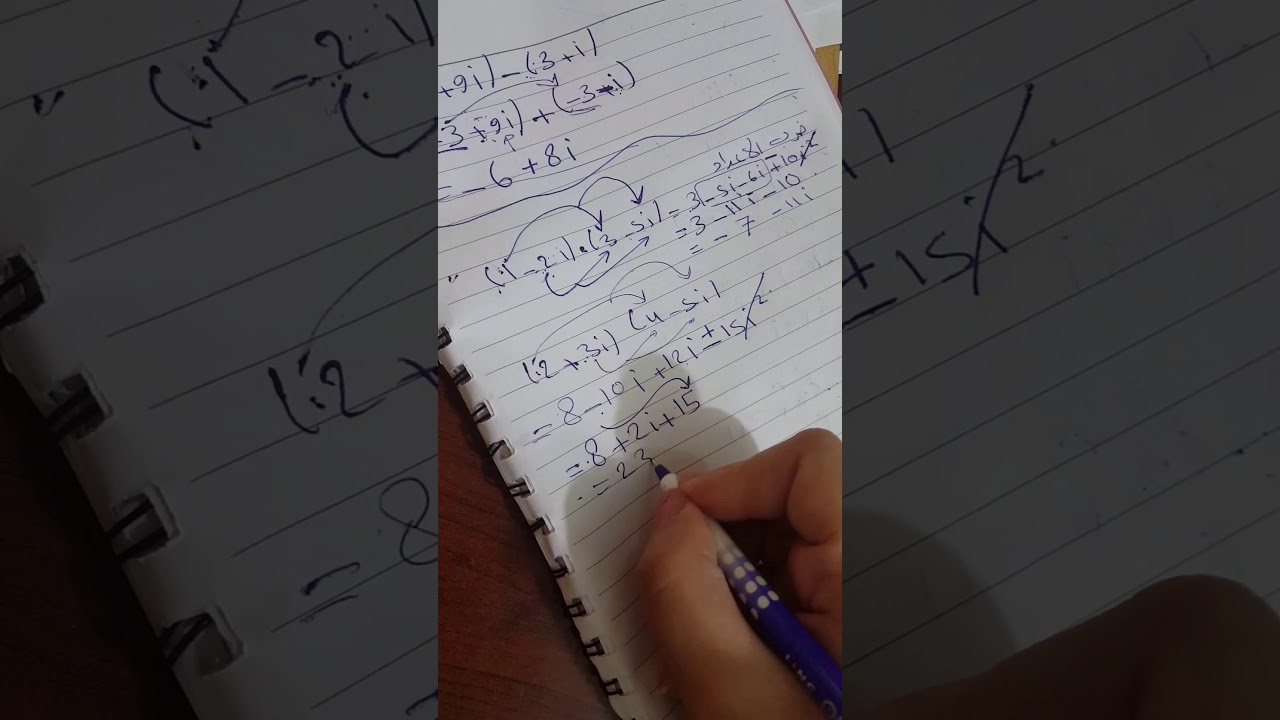 +9i) - (3+i)
-3 +9i) + (-3-i)
= -6 + 8i
ضرب الأعداد
(1 - 2i) . (3 - 5i) = 3 -5i - 6i +10i²
= 3 - 11i - 10
= - 7 - 11i
(2 + 3i) (4 - 5i)
= 8 - 10i + 12i ± 15i²
= 8 + 2i + 15
= 23